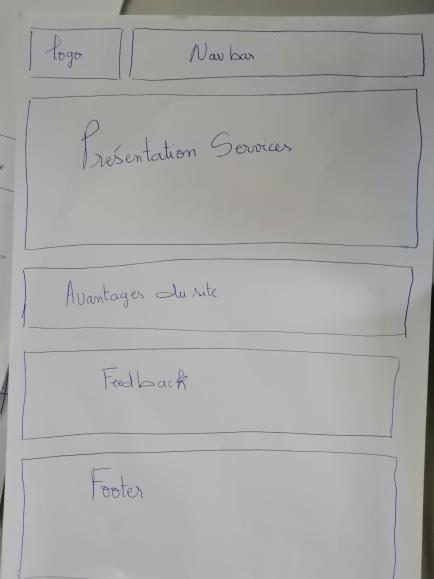 logo
Navbar
Présentation Services
Avantages du site
Feedback
Footer